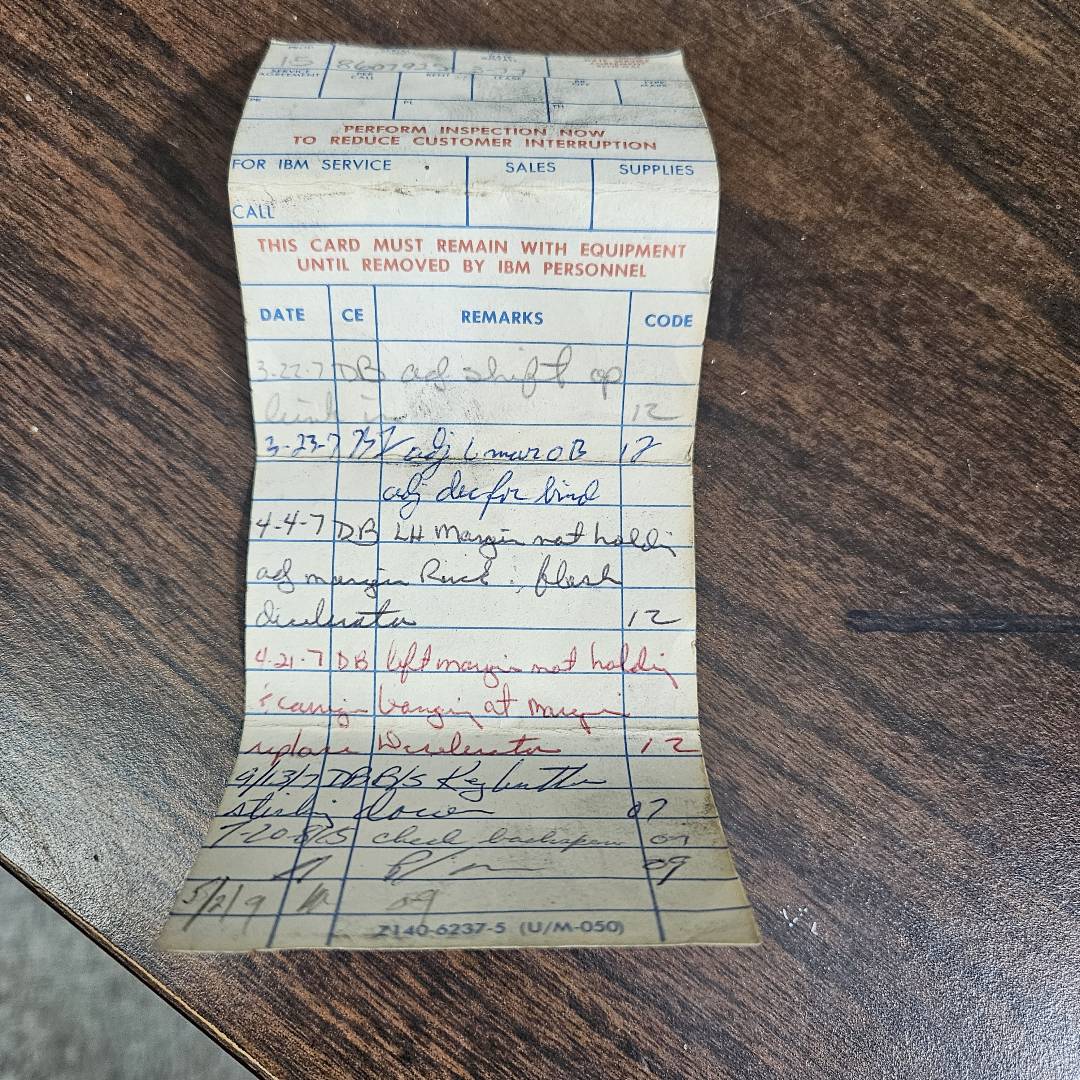 15 8607933 3-77
SERVICE AGREEMENT PER CALL RENT LEASE
PERFORM INSPECTION NOW
TO REDUCE CUSTOMER INTERRUPTION
FOR IBM SERVICE SALES SUPPLIES
CALL
THIS CARD MUST REMAIN WITH EQUIPMENT
UNTIL REMOVED BY IBM PERSONNEL
DATE CE REMARKS CODE
3-22-7 DB adj shift op
12
3-23-7 adj L mar OB 12
adj dec for bind
4-4-7 DB LH Margin not holdin
adj margin Rack & flush
decelerator 12
4-21-7 DB left margin not holding
& carrige banging at margin
replace Decelerator 12
9/13/7 DB B/S Keybutton
sticking down 07
7-20-8 check backspace 09
09
5/2/9 09
Z140-6237-5 (U/M-050)